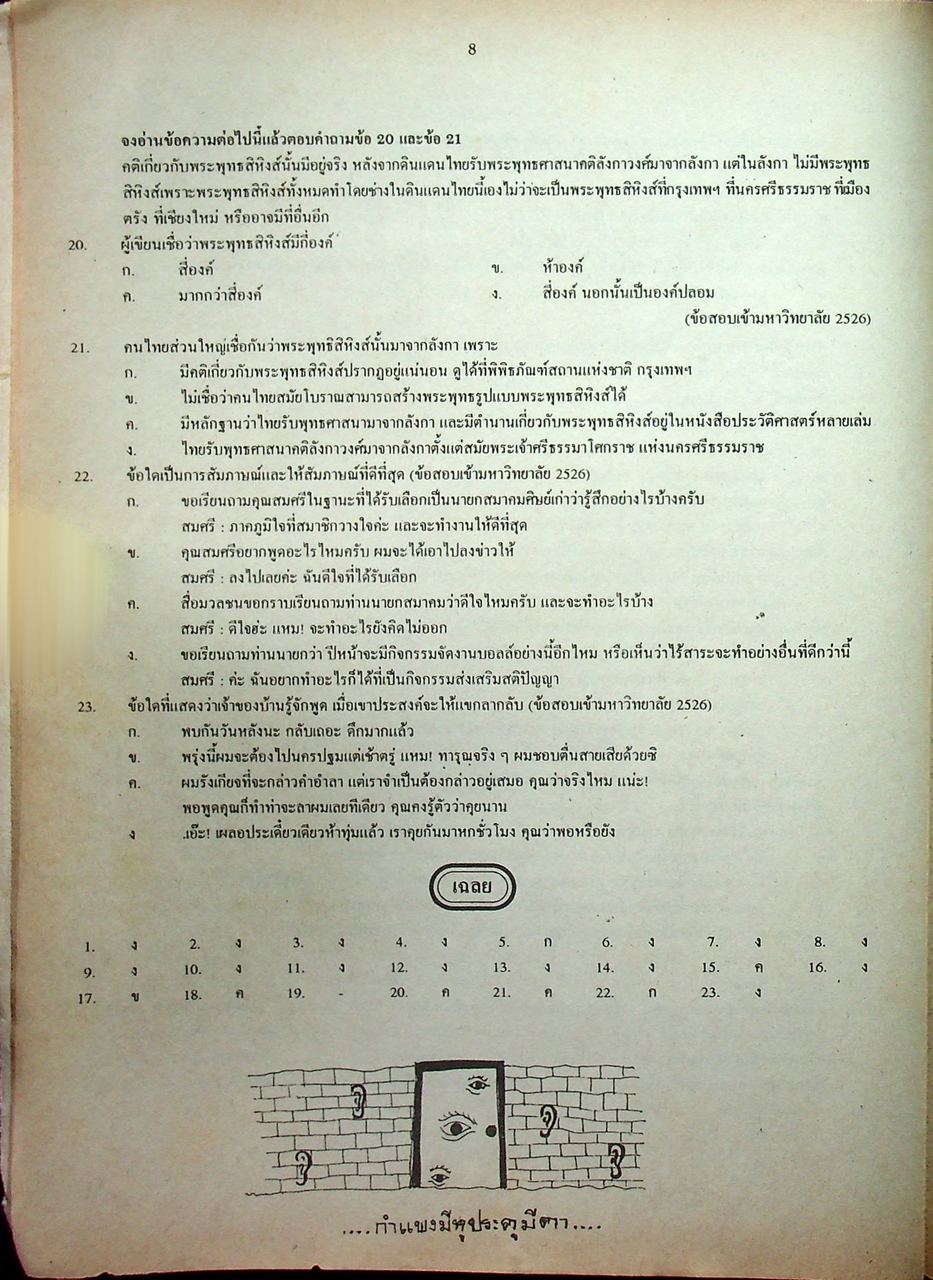 8
จงอ่านข้อความต่อไปนี้แล้วตอบคำถามข้อ 20 และข้อ 21
คติเกี่ยวกับพระพุทธสิหิงส์นั้นมีอยู่จริง หลังจากดินแดนไทยรับพระพุทธศาสนาคติลังกาวงศ์มาจากลังกา แต่ในลังกา ไม่มีพระพุทธ
สิหิงส์เพราะพระพุทธสิหิงส์ทั้งหมดทำโดยช่างในดินแดนไทยนี้เองไม่ว่าจะเป็นพระพุทธสิหิงส์ที่กรุงเทพฯ ที่นครศรีธรรมราช ที่เมือง
ตรัง ที่เชียงใหม่ หรืออาจมีที่อื่นอีก
20. ผู้เขียนเชื่อว่าพระพุทธสิหิงส์มีกี่องค์
ก. สี่องค์ ข. ห้าองค์
ค. มากกว่าสี่องค์ ง. สี่องค์ นอกนั้นเป็นองค์ปลอม
(ข้อสอบเข้ามหาวิทยาลัย 2526)
21. คนไทยส่วนใหญ่เชื่อกันว่าพระพุทธิสิหิงส์นั้นมาจากลังกา เพราะ
ก. มีคติเกี่ยวกับพระพุทธสิหิงส์ปรากฏอยู่แน่นอน ดูได้ที่พิพิธภัณฑ์สถานแห่งชาติ กรุงเทพฯ
ข. ไม่เชื่อว่าคนไทยสมัยโบราณสามารถสร้างพระพุทธรูปแบบพระพุทธสิหิงส์ได้
ค. มีหลักฐานว่าไทยรับพุทธศาสนามาจากลังกา และมีตำนานเกี่ยวกับพระพุทธสิหิงส์อยู่ในหนังสือประวัติศาสตร์หลายเล่ม
ง. ไทยรับพุทธศาสนาคติลังกาวงศ์มาจากลังกาตั้งแต่สมัยพระเจ้าศรีธรรมาโศกราช แห่งนครศรีธรรมราช
22. ข้อใดเป็นการสัมภาษณ์และให้สัมภาษณ์ที่ดีที่สุด (ข้อสอบเข้ามหาวิทยาลัย 2526)
ก. ขอเรียนถามคุณสมศรีในฐานะที่ได้รับเลือกเป็นนายกสมาคมศิษย์เก่าว่ารู้สึกอย่างไรบ้างครับ
สมศรี : ภาคภูมิใจที่สมาชิกวางใจค่ะ และจะทำงานให้ดีที่สุด
ข. คุณสมศรีอยากพูดอะไรไหมครับ ผมจะได้เอาไปลงข่าวให้
สมศรี : ลงไปเลยค่ะ ฉันดีใจที่ได้รับเลือก
ค. สื่อมวลชนขอกราบเรียนถามท่านนายกสมาคมว่าดีใจไหมครับ และจะทำอะไรบ้าง
สมศรี : ดีใจฮ่ะ แหม! จะทำอะไรยังคิดไม่ออก
ง. ขอเรียนถามท่านนายกว่า ปีหน้าจะมีกิจกรรมจัดงานบอลล์อย่างนี้อีกไหม หรือเห็นว่าไร้สาระจะทำอย่างอื่นที่ดีกว่านี้
สมศรี : ค่ะ ฉันอยากทำอะไรก็ได้ที่เป็นกิจกรรมส่งเสริมสติปัญญา
23. ข้อใดที่แสดงว่าเจ้าของบ้านรู้จักพูด เมื่อเขาประสงค์จะให้แขกลากลับ (ข้อสอบเข้ามหาวิทยาลัย 2526)
ก. พบกันวันหลังนะ กลับเถอะ ดึกมากแล้ว
ข. พรุ่งนี้ผมจะต้องไปนครปฐมแต่เช้าตรู่ แหม! ทารุณจริง ๆ ผมชอบตื่นสายเสียด้วยซิ
ค. ผมรังเกียจที่จะกล่าวคำอำลา แต่เราจำเป็นต้องกล่าวอยู่เสมอ คุณว่าจริงไหม แน่ะ!
พอพูดคุณก็ทำท่าจะลาผมเลยทีเดียว คุณคงรู้ตัวว่าคุยนาน
ง .เอ๊ะ! เผลอประเดี๋ยวเดียวห้าทุ่มแล้ว เราคุยกันมาหกชั่วโมง คุณว่าพอหรือยัง
เฉลย
1. ง 2. ง 3. ง 4. ง 5. ก 6. ง 7. ง 8. ง
9. ง 10. ง 11. ง 12. ง 13. ง 14. ง 15. ค 16. ง
17. ข 18. ค 19. - 20. ค 21. ค 22. ก 23. ง
....กำแพงมีหูประตูมีตา....